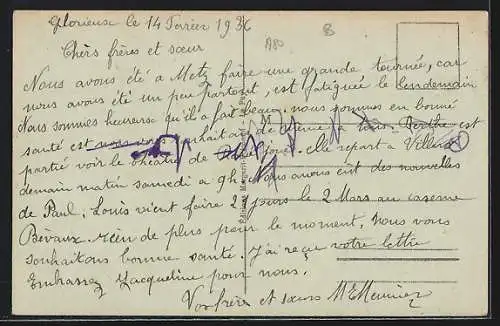 Glorieuse le 14 Fevrier 1936
A80
8
Chers frères et sœur
Nous avous été a Metz faire une grande tournée, car
nous avous été un peu partout, est fatiguée le lendemain
Nous sommes heureuse qu'il a fait beau. nous sommes en bonne
santé est nous vous souhaitais de même a tous. Berthe est
partie voir le théatre de elle repart a Villers
demain matin samedi a 9h. Nous avous eut des nouvelles
de Paul. Louis vient faire 2 jours le 2 Mars au caserne
Bévaux. rien de plus pour le moment, Nous vous
souhaitons bonne santé. J'ai reçue votre lettre
Embrassez Jacqueline pour nous.
Vos frère et sœurs M E Meunier
Editions